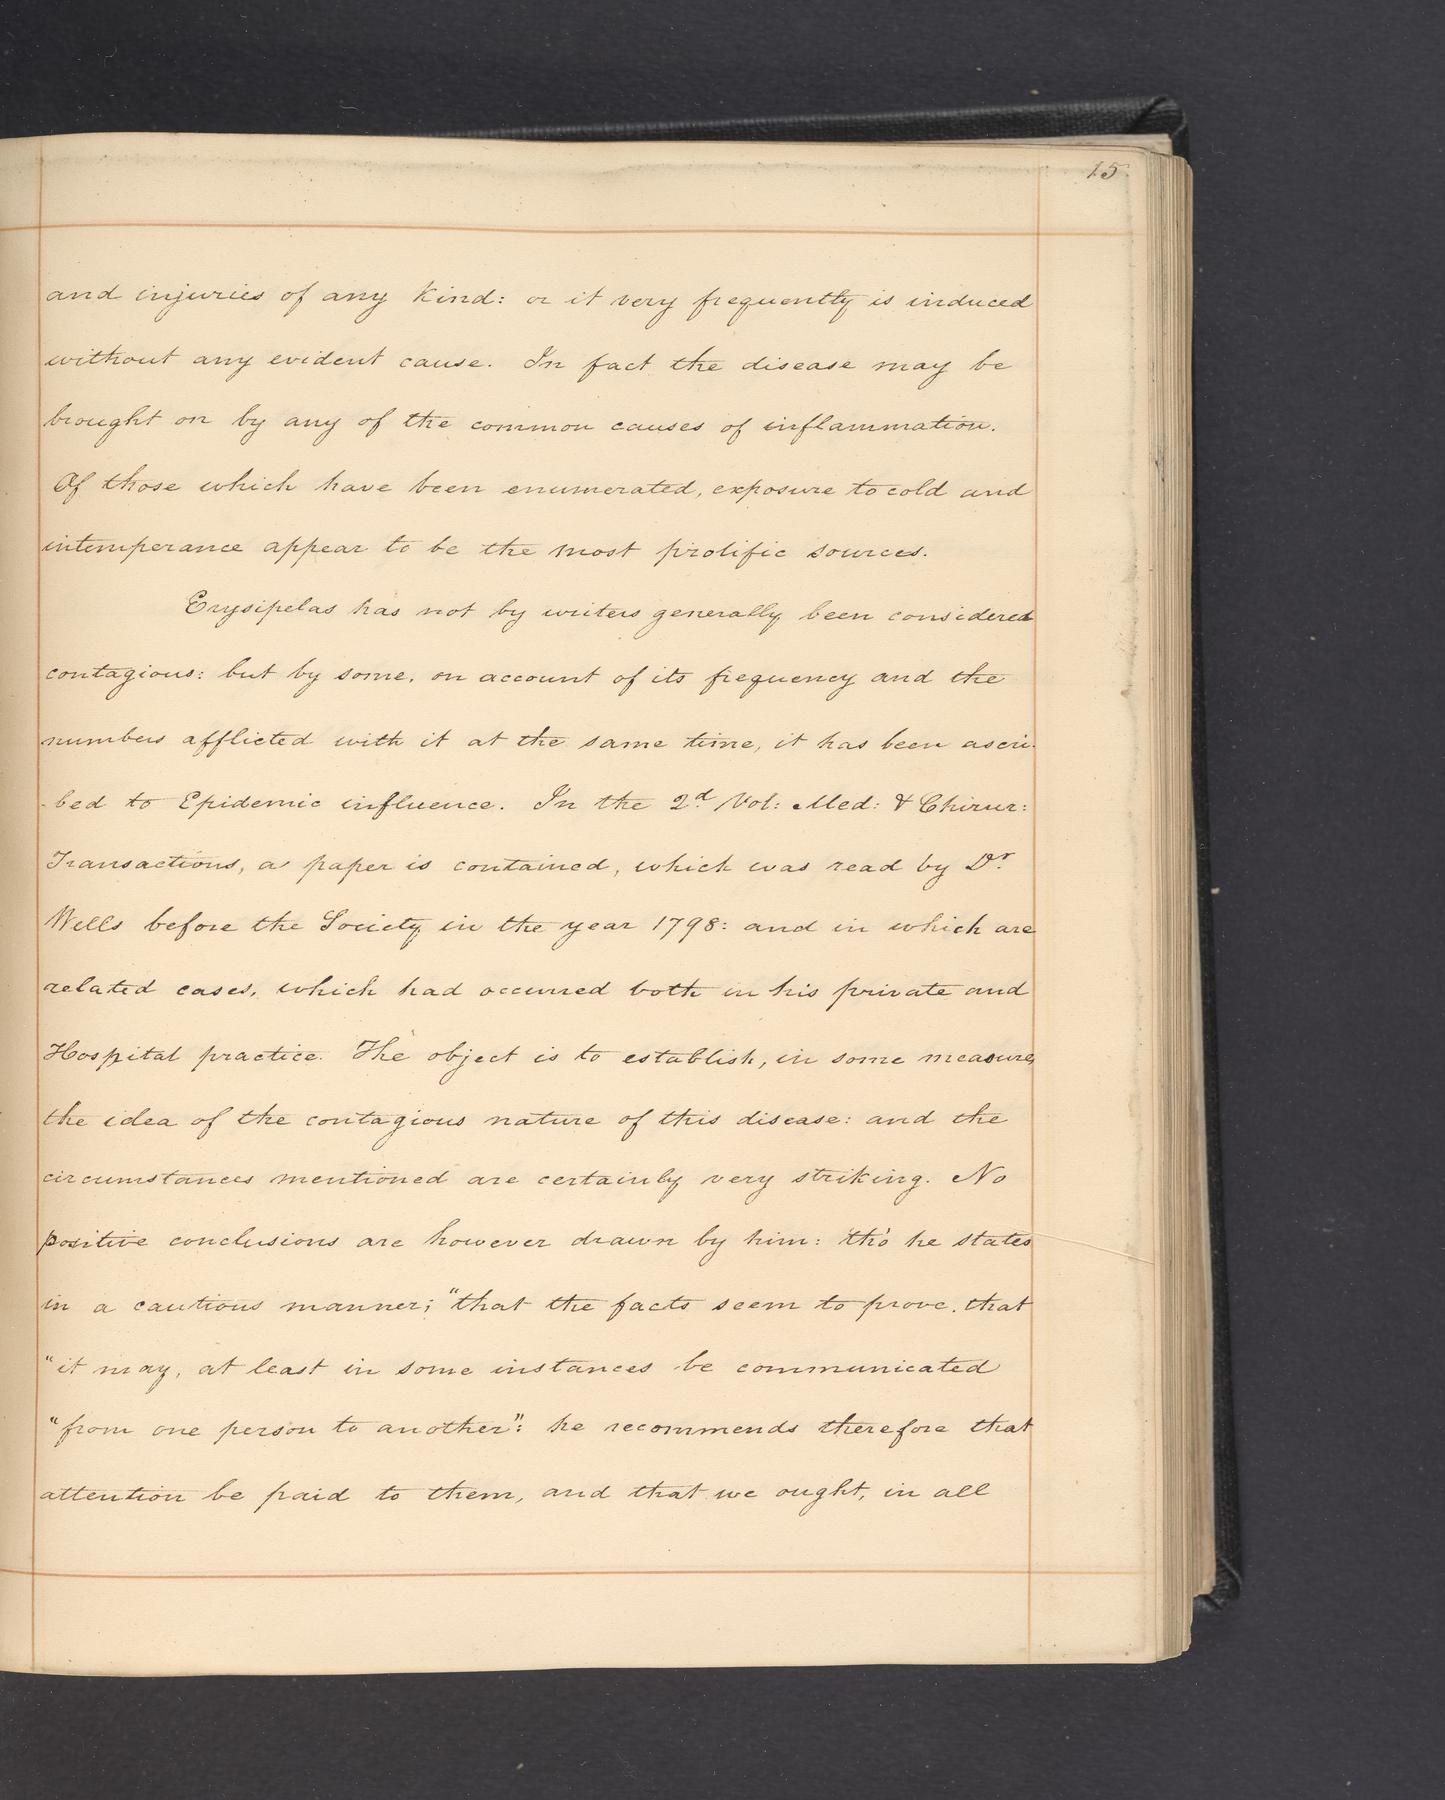 15
and injuries of any kind: or it very frequently is induced
without any evident cause. In fact the disease may be
brought on by any of the common causes of inflammation.
Of those which have been enumerated, exposure to cold and
intemperance appear to be the most prolific sources.
Erysipelas has not by writers generally been considered
contagious: but by some, on account of its frequency and the
numbers afflicted with it at the same time, it has been ascri-
-bed to Epidemic influence. In the 2d Vol: Med: & Chirur:
Transactions, a paper is contained, which was read by Dr.
Wells before the Society in the year 1798: and in which are
related cases, which had occurred both in his private and
Hospital practice. The object is to establish, in some measure,
the idea of the contagious nature of this disease: and the
circumstances mentioned are certainly very striking. No
positive conclusions are however drawn by him: tho' he states
in a cautious manner; "that the facts seem to prove, that
"it may, at least in some instances be communicated
"from one person to another": he recommends therefore that
attention be paid to them, and that we ought, in all